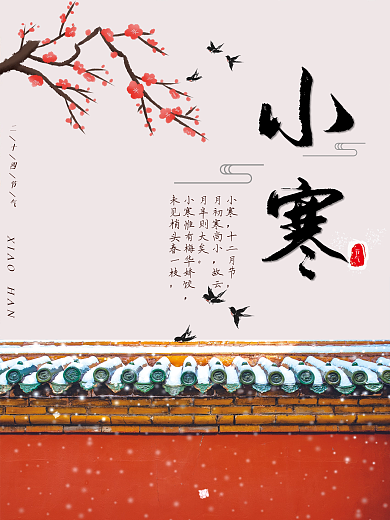 小寒
小寒，十二月节，
月初寒尚小，故云
月半则大矣。
小寒惟有梅华娇饺，
未见梢头春一枝，
二/十/四/节/气
XIAO HAN